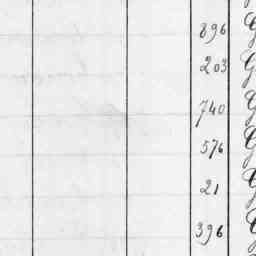 896 G
203 G
740 G
576 G
21 G
396 G